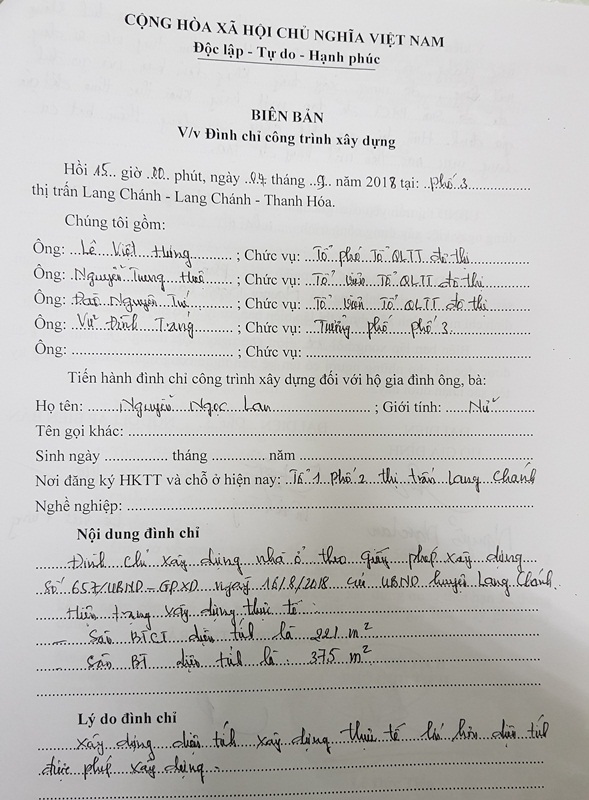 CỘNG HÒA XÃ HỘI CHỦ NGHĨA VIỆT NAM
Độc lập - Tự do - Hạnh phúc
BIÊN BẢN
V/v Đình chỉ công trình xây dựng
Hồi 15.. giờ ..00.. phút, ngày ..04.. tháng ..9.. năm 2018 tại: ..phố 3..............
thị trấn Lang Chánh - Lang Chánh - Thanh Hóa.
Chúng tôi gồm:
Ông: ...Lê Việt Hưng.......... ; Chức vụ: ...Tổ phó Tổ QLTT đô thị
Ông: Nguyễn Trung ......... ; Chức vụ: ...Tổ viên Tổ QLTT đô thị
Ông: Đào Nguyên Tú.......... ; Chức vụ: ...Tổ viên Tổ QLTT đô thị
Ông: ..Vũ Đình Trang.......... ; Chức vụ: ...Trưởng phố phố 3..........
Ông: .................................. ; Chức vụ: ..................................
Tiến hành đình chỉ công trình xây dựng đối với hộ gia đình ông, bà:
Họ tên: .......Nguyễn Ngọc Lan.................... ; Giới tính: .....Nữ.........
Tên gọi khác: ..................................................
Sinh ngày ............... tháng ............ năm ..............................
Nơi đăng ký HKTT và chỗ ở hiện nay: ..Tổ 1 phố 2 thị trấn Lang Chánh
Nghề nghiệp: ..................................................
Nội dung đình chỉ
Đình chỉ xây dựng nhà ở theo giấy phép xây dựng
Số 657/UBND - GPXD ngày 16/8/2018 của UBND huyện Lang Chánh.
Hiện trạng xây dựng thực tế :
- Sàn BTCT diện tích là 221 m²
- Sàn BT diện tích là 375 m²
Lý do đình chỉ
Xây dựng diện tích xây dựng thực tế lớn hơn diện tích
được phép xây dựng.